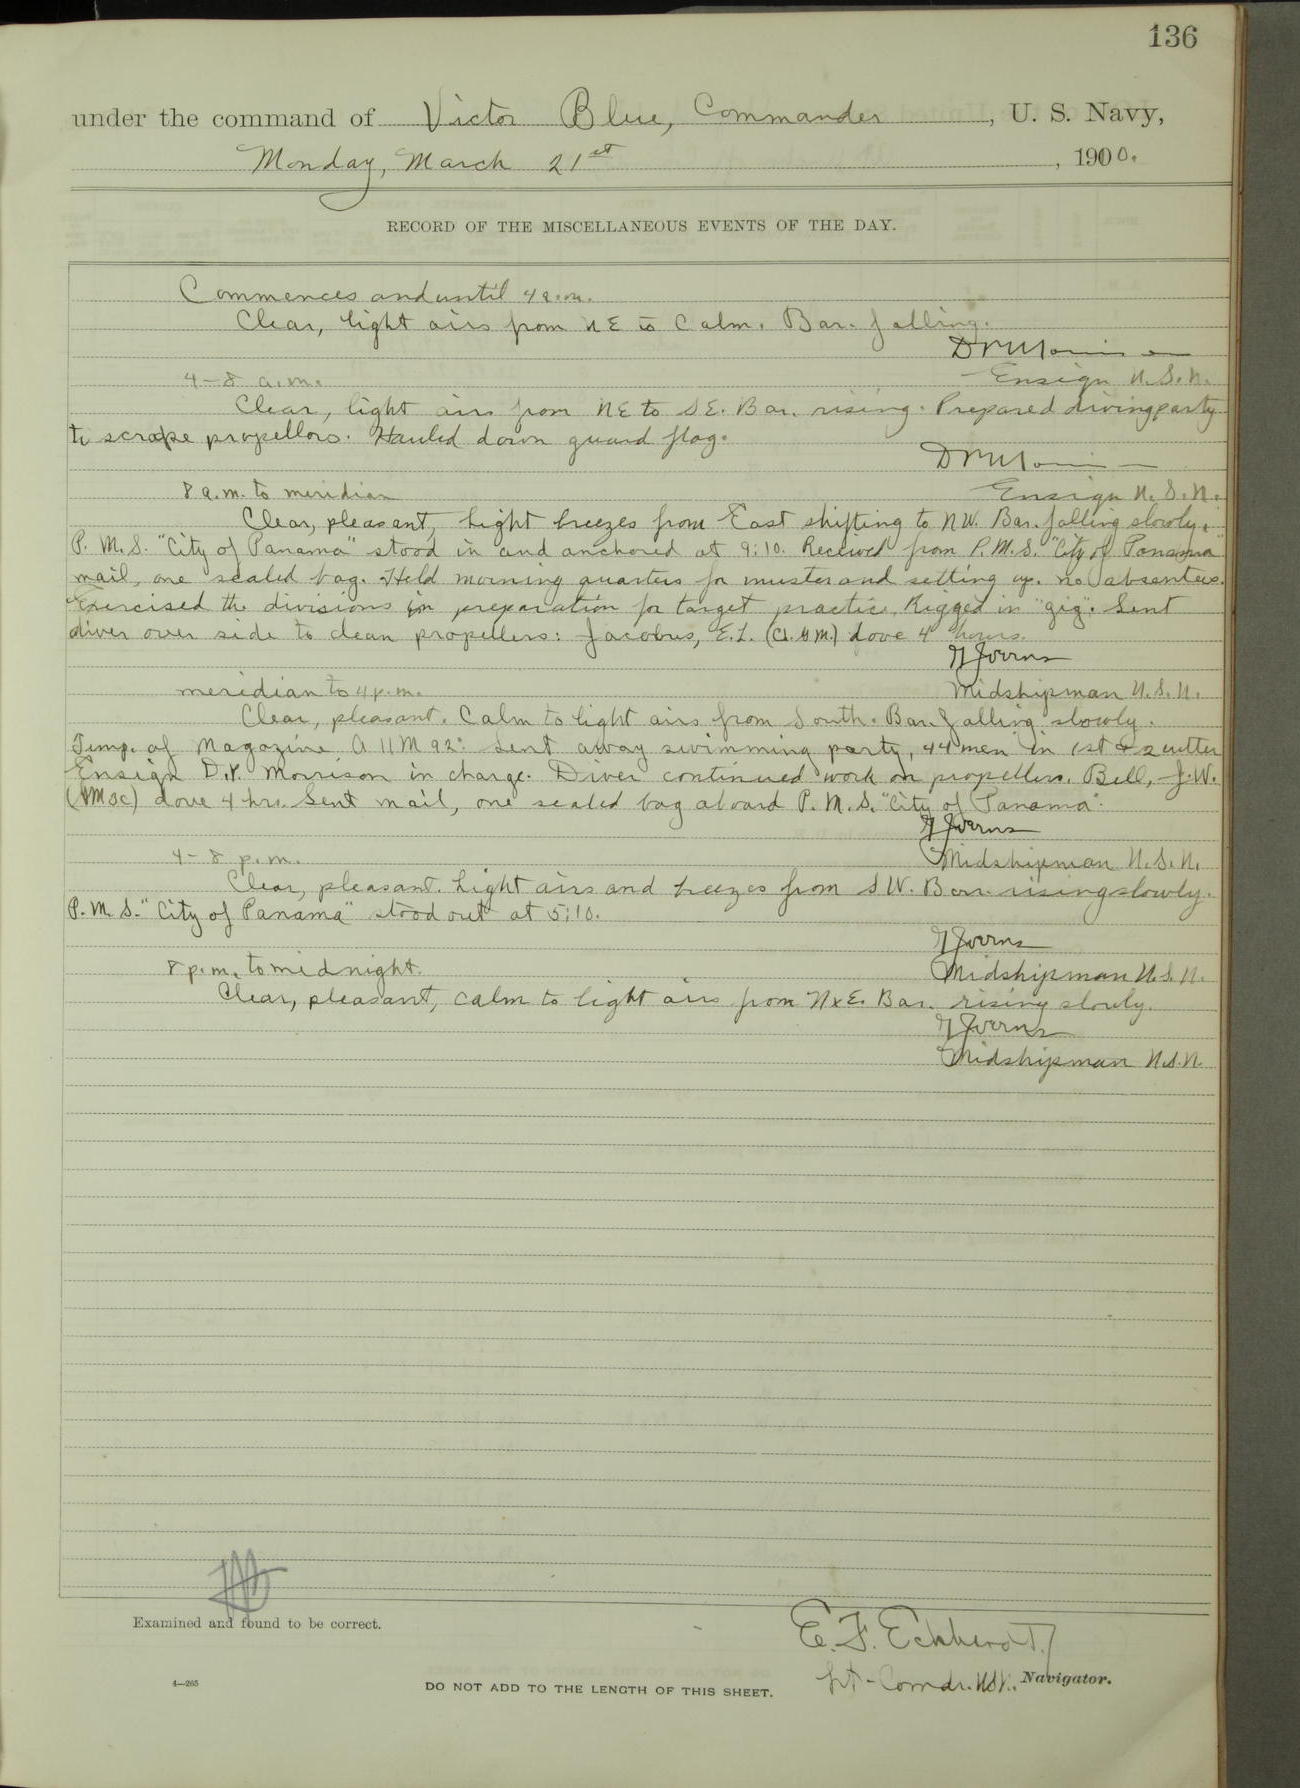 136
under the command of Victor Blue, Commander, U. S. Navy,
Monday, March 21st, 1900.
RECORD OF THE MISCELLANEOUS EVENTS OF THE DAY.
Commences and until 4 a.m.
Clear, light airs from NE to Calm. Bar. falling.
Ensign U.S.N.
4-8 a.m.
Clear, light airs from NE to SE. Bar. rising. Prepared diving party
to scrape propellors. Hauled down guard flag.
Ensign U.S.N.
8 a.m. to meridian
Clear, pleasant, light breezes from East shifting to NW. Bar. falling slowly.
P. M. S. "City of Panama" stood in and anchored at 9:10. Received from P. M. S. "City of Panama"
mail, one sealed bag. Held morning quarters for muster and setting up. no absentees.
Exercised the divisions in preparation for target practice. Rigged in "gig". Sent
diver over side to clean propellers: Jacobus, E.L. (C.G.M.) dove 4 hours.
Midshipman U.S.N.
meridian to 4 p.m.
Clear, pleasant. Calm to light airs from South. Bar. falling slowly.
Temp. of Magazine A 11 M 92° Sent away swimming party, 44 men in 1st & 2 cutter
Ensign D.P. Morrison in charge. Diver continued work on propellers. Bell, J.W.
dove 4 hrs. Sent mail, one sealed bag aboard P. M. S. "City of Panama".
Midshipman U.S.N.
4-8 p.m.
Clear, pleasant. Light airs and breezes from SW. Bar. rising slowly.
P. M. S. "City of Panama" stood out at 5:10.
Midshipman U.S.N.
8 p.m. to midnight.
Clear, pleasant, calm to light airs from NxE. Bar. rising slowly.
Midshipman U.S.N.
Examined and found to be correct.
E. F. Eckhardt
Lt-Comdr. U.S.N. Navigator.
4—265
DO NOT ADD TO THE LENGTH OF THIS SHEET.